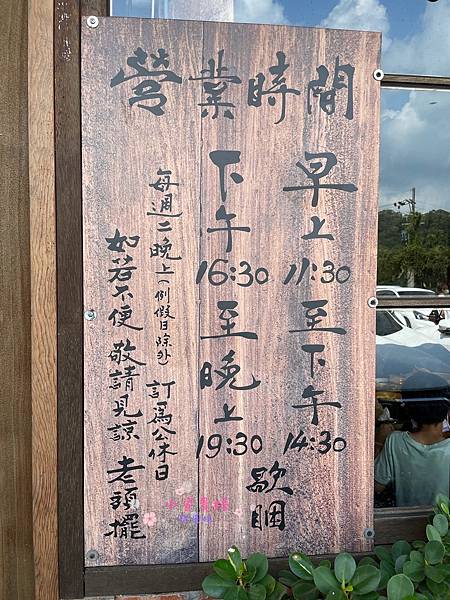 營業時間
早上11:30至下午14:30
歇睏
下午16:30至晚上19:30
每週二晚上(例假日除外)訂為公休日
如若不便敬請見諒 老頭擺